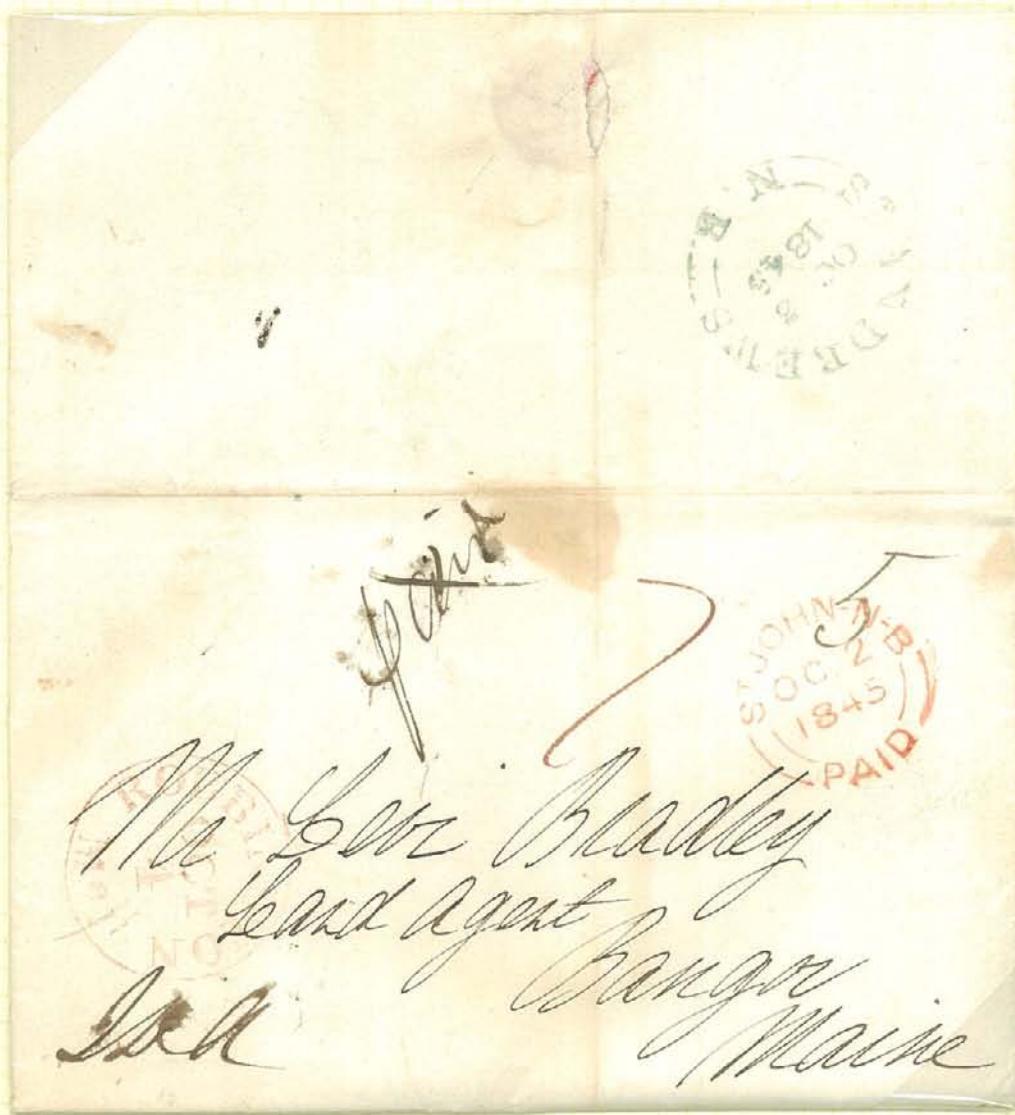 ST ANDREWS N.B.
OC 3
1845
Paid
7
5
ST JOHN-N-B
OC 2
1845
PAID
Mr Levi Bradley
Land Agent
Bangor
Maine
OCT
1